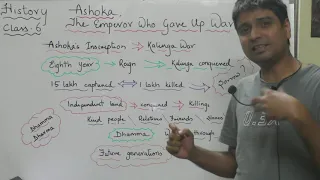 History
Class: 6
Ashoka,
The Emperor Who Gave Up War
Ashokas Inscription → Kalinga War
Eighth Year → Reign Kalinga conquered
1.5 lakh captured 1 lakh killed
Independent land → conquered → Killings
Kind people Relatives Friends Slaves
Dhamma through
Dhamma
Dharma
Future generations